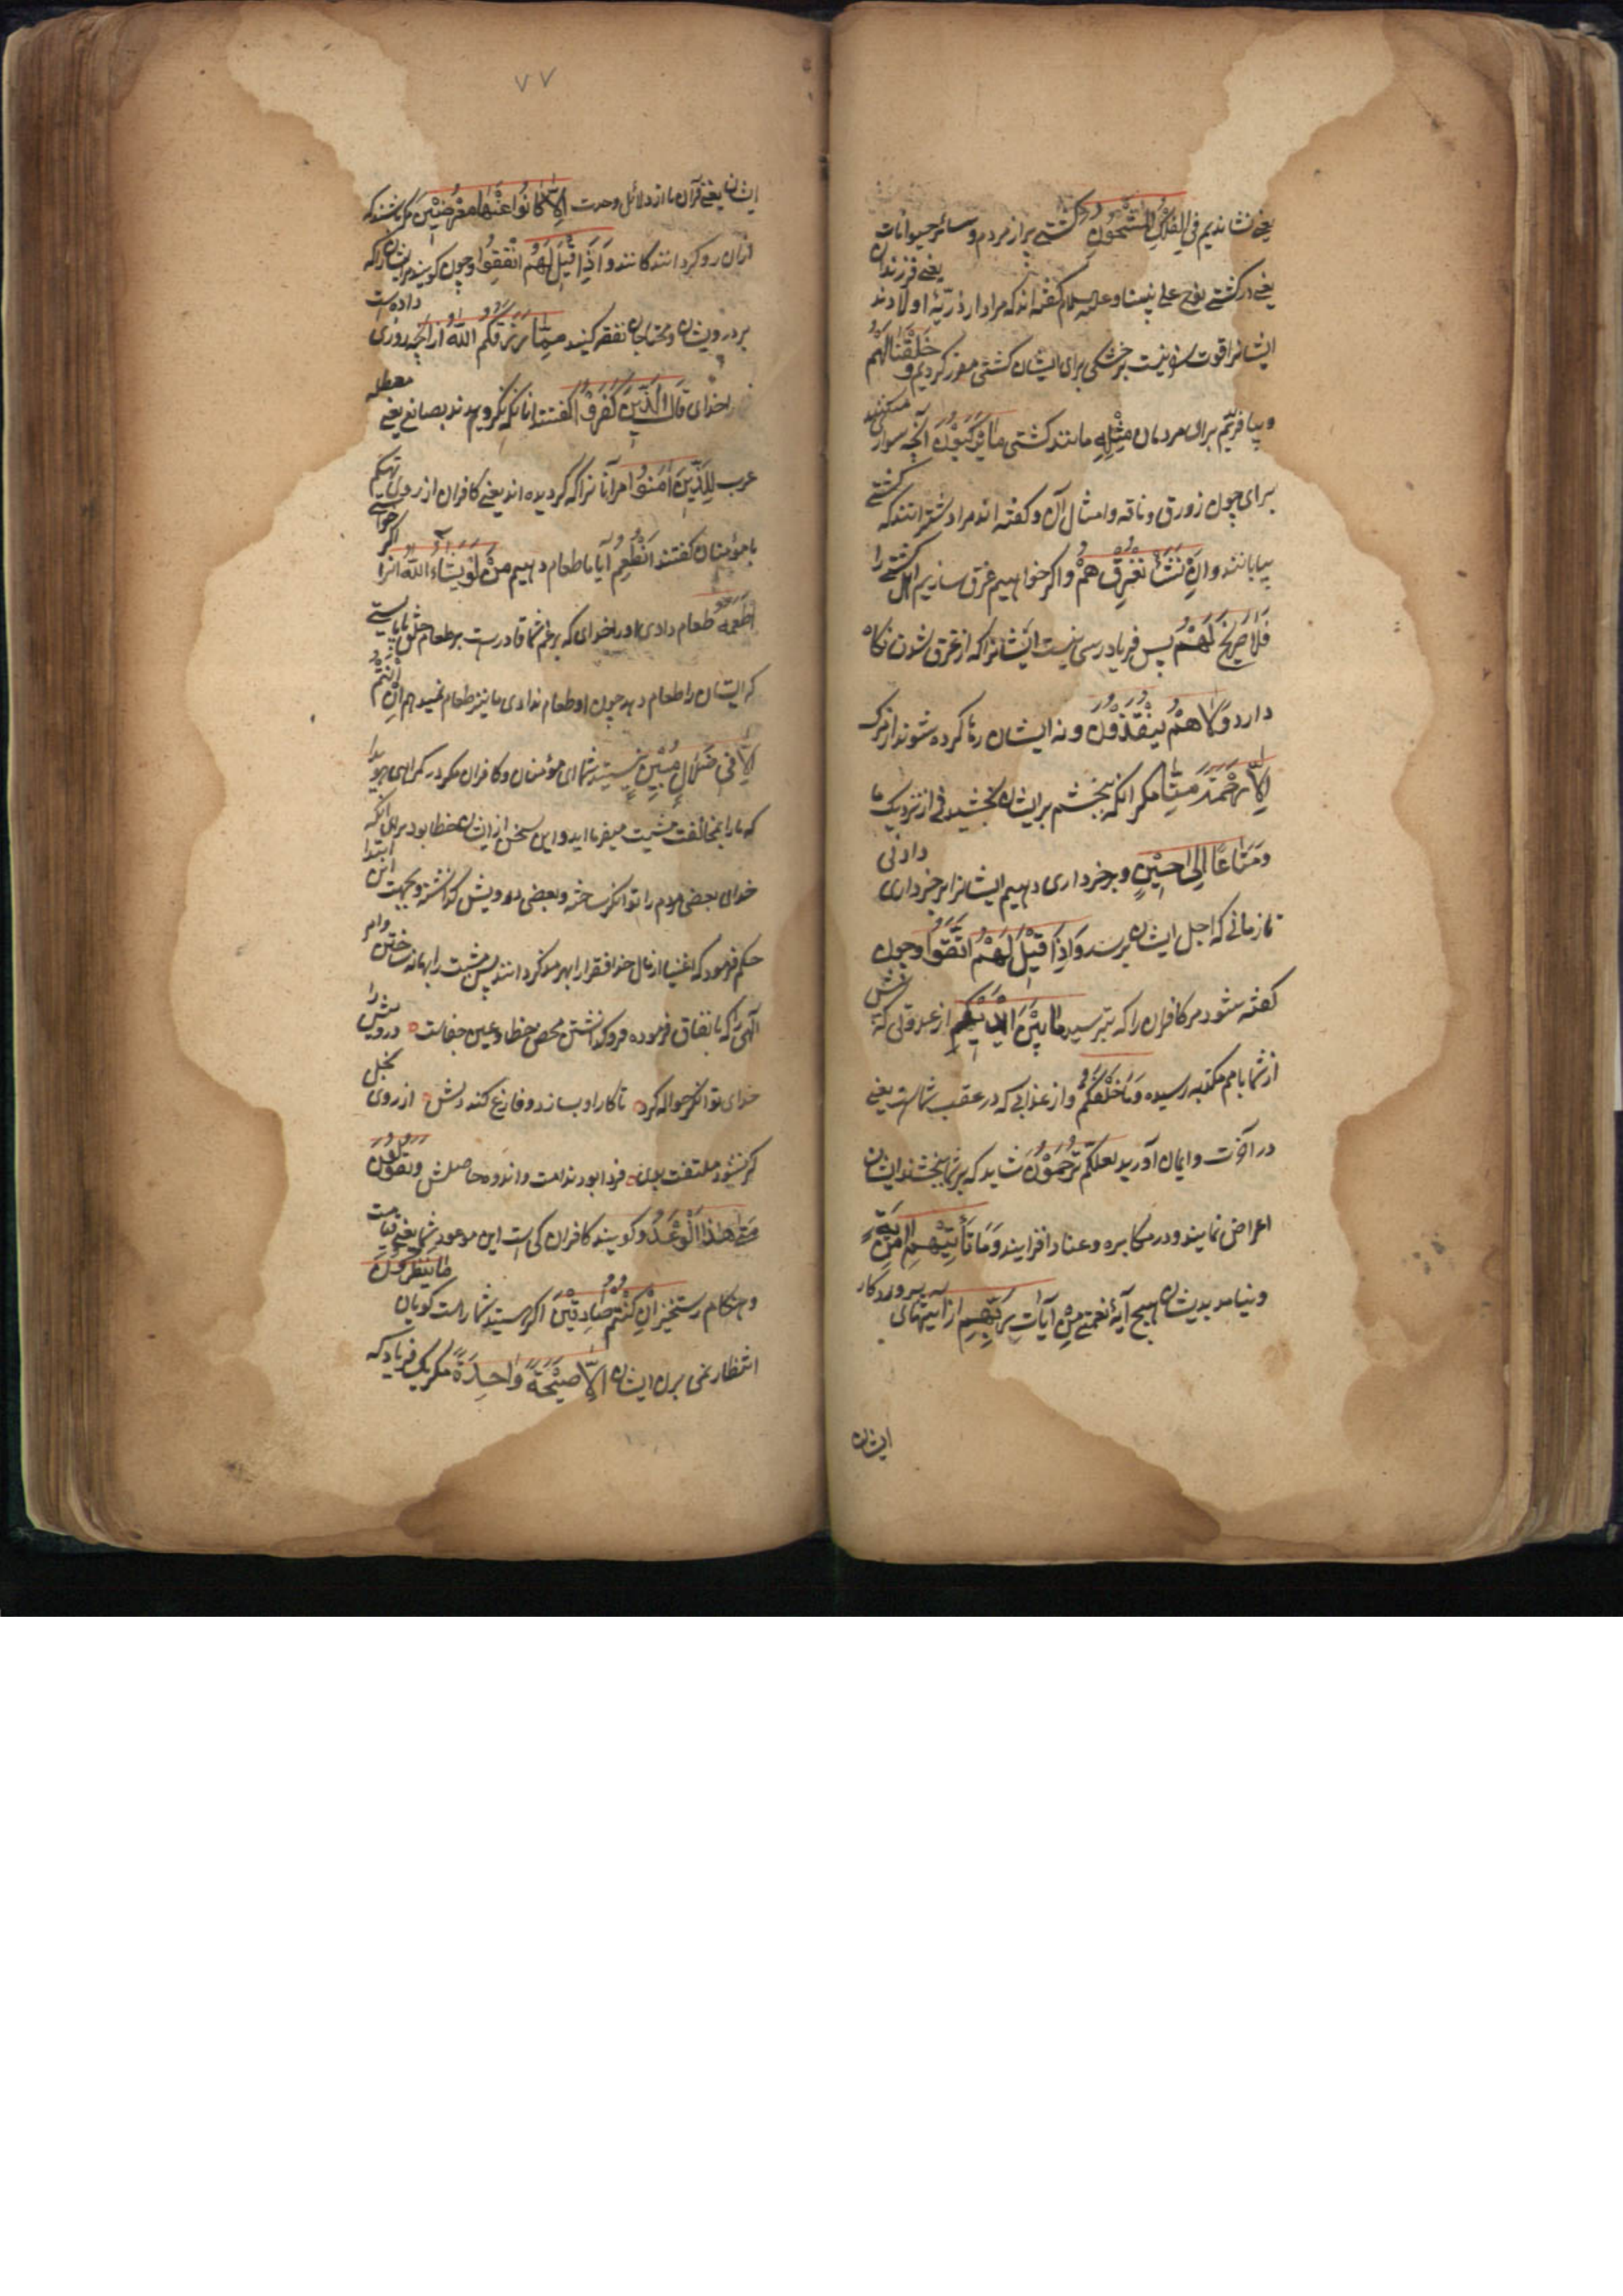 یعنی نشاندیم فی الفلک المشحون در کشتی پر از مردم و سائر حیوانات
یعنی در کشتی نوح علی نبینا و علیه السلام گفته اند که مراد از ذریة اولادند یعنی فرزندان
ایشانرا قوت سفر نیست بر خشکی برای ایشان کشتی مقرر کردیم و خلقنا لهم
و بیافریدیم برای مردمان من مثله مانند کشتی ما یرکبون آنچه سواری میکنند
برای چون زورق و ناقه و امثال آن و گفته اند مراد شترانند که کشتی
بیابانند و ان نشأ نغرقهم و اگر خواهیم غرق سازیم اهل کشتی را
فلا صریخ لهم پس فریادرسی نیست ایشانرا که از غرق شدن نگاه
دارد و لا هم ینقذون و نه ایشان رها کرده شوند از مرگ
الا رحمة منا مگر آنکه ببخشم بر ایشان بخشیدنی از نزدیک ما
و متاعا الی حین و برخورداری دهیم ایشانرا برخورداری دادنی
تا زمانی که اجل ایشان برسد و اذا قیل لهم اتقوا و چون
گفته شود مر کافران را که بترسید ما بین ایدیکم از عذابی که پیش
از شما بامم مکذبه رسیده و ما خلفکم و از عذابی که در عقب شماست یعنی
در آخرت و ایمان آورید لعلکم ترحمون شاید که بر شما ببخشند ایشان
اعراض نمایند و در مکابره و عناد افزایند و ما تأتیهم من آیة
و نیامد بدیشان هیچ آیۀ نعمتی من آیات ربهم از آیتهای پروردگار
ایشان
۷۷
ایشان یعنی قرآن ما از دلائل وحدت الا کانوا عنها معرضین مگر باشند که
از آن رو گردانندگانند و اذا قیل لهم انفقوا و چون گویند مر ایشان را که
بر درویشان و محتاجان نفقه کنید مما رزقکم الله از آنچه روزی داده است
خدای قال الذین کفروا گفتند آنانکه نگرویدند بصانع یعنی معطله
عرب للذین آمنوا مر آنانرا که گرویده اند یعنی کافران از روی تهکم
با مؤمنان گفتند انطعم آیا ما طعام دهیم من لو یشاء الله آنرا اگر خواستی
اطعمه طعام دادی او را خدای که بزعم شما قادرست بر طعام خلق بایستی
که ایشان را طعام دهد چون او طعام ندادی ما نیز طعام نمیدهیم ان انتم
الا فی ضلال مبین نیستید شما ای مؤمنان و کافران مگر در گمراهی هویدا
که ما را بمخالفت مشیت میفرمایید و این سخن از ایشان خطا بود برای آنکه
خدای بعضی مردم را توانگر ساخته و بعضی درویش گذاشته و بجهت این ابتدا
حکم فرمود که اغنیا از مال خدا فقرا را بهره مند گردانند پس مشیت را بهانه ساختن و امر
الهی را که بانفاق فرموده فرو گذاشتن محض خطا و عین جفاست درویش را
خدای توانگر حواله کرد تا کار او بسازد و فارغ کند دلش از روی بخل
گر نشود ملتفت بدان فردا بود ندامت و اندوه حاصلش و یقولون
متی هذا الوعد و گویند کافران کی است این موعود شما یعنی قیامت
و هنگام رستخیز ان کنتم صادقین اگر هستید شما راست گویان ما ینظرون
انتظار نمی برند ایشان الا صیحة واحدة مگر یک فریاد که